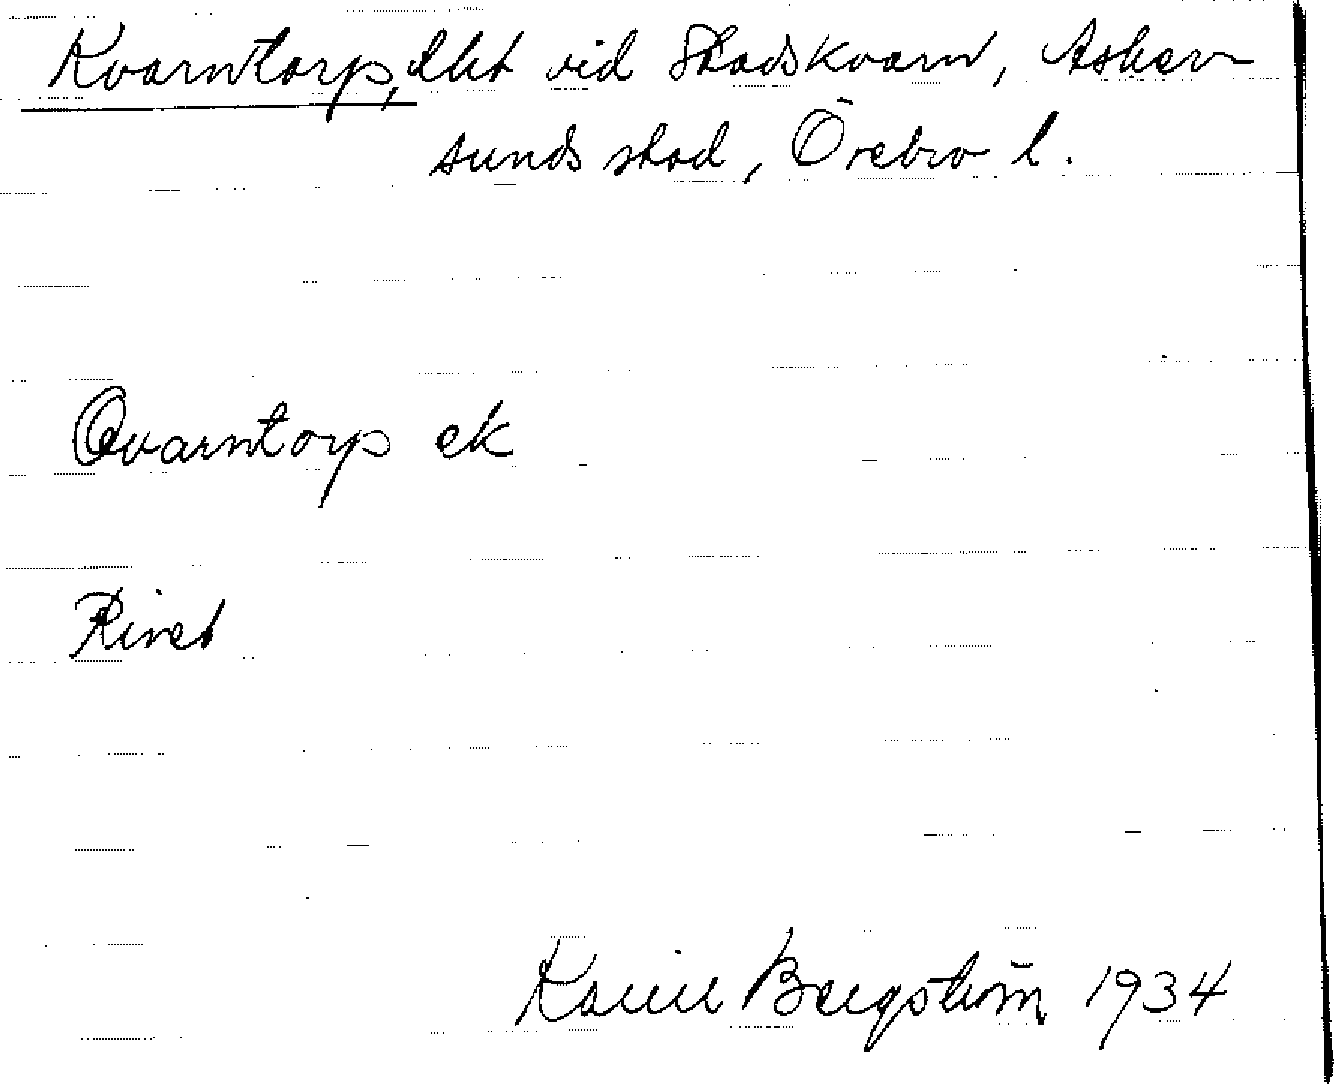 Kvarntorp, lht vid Stadskvarn, Asker-
sunds stad, Örebro l.
Qvarntorp ek
Rivet
Karin Bergström 1934